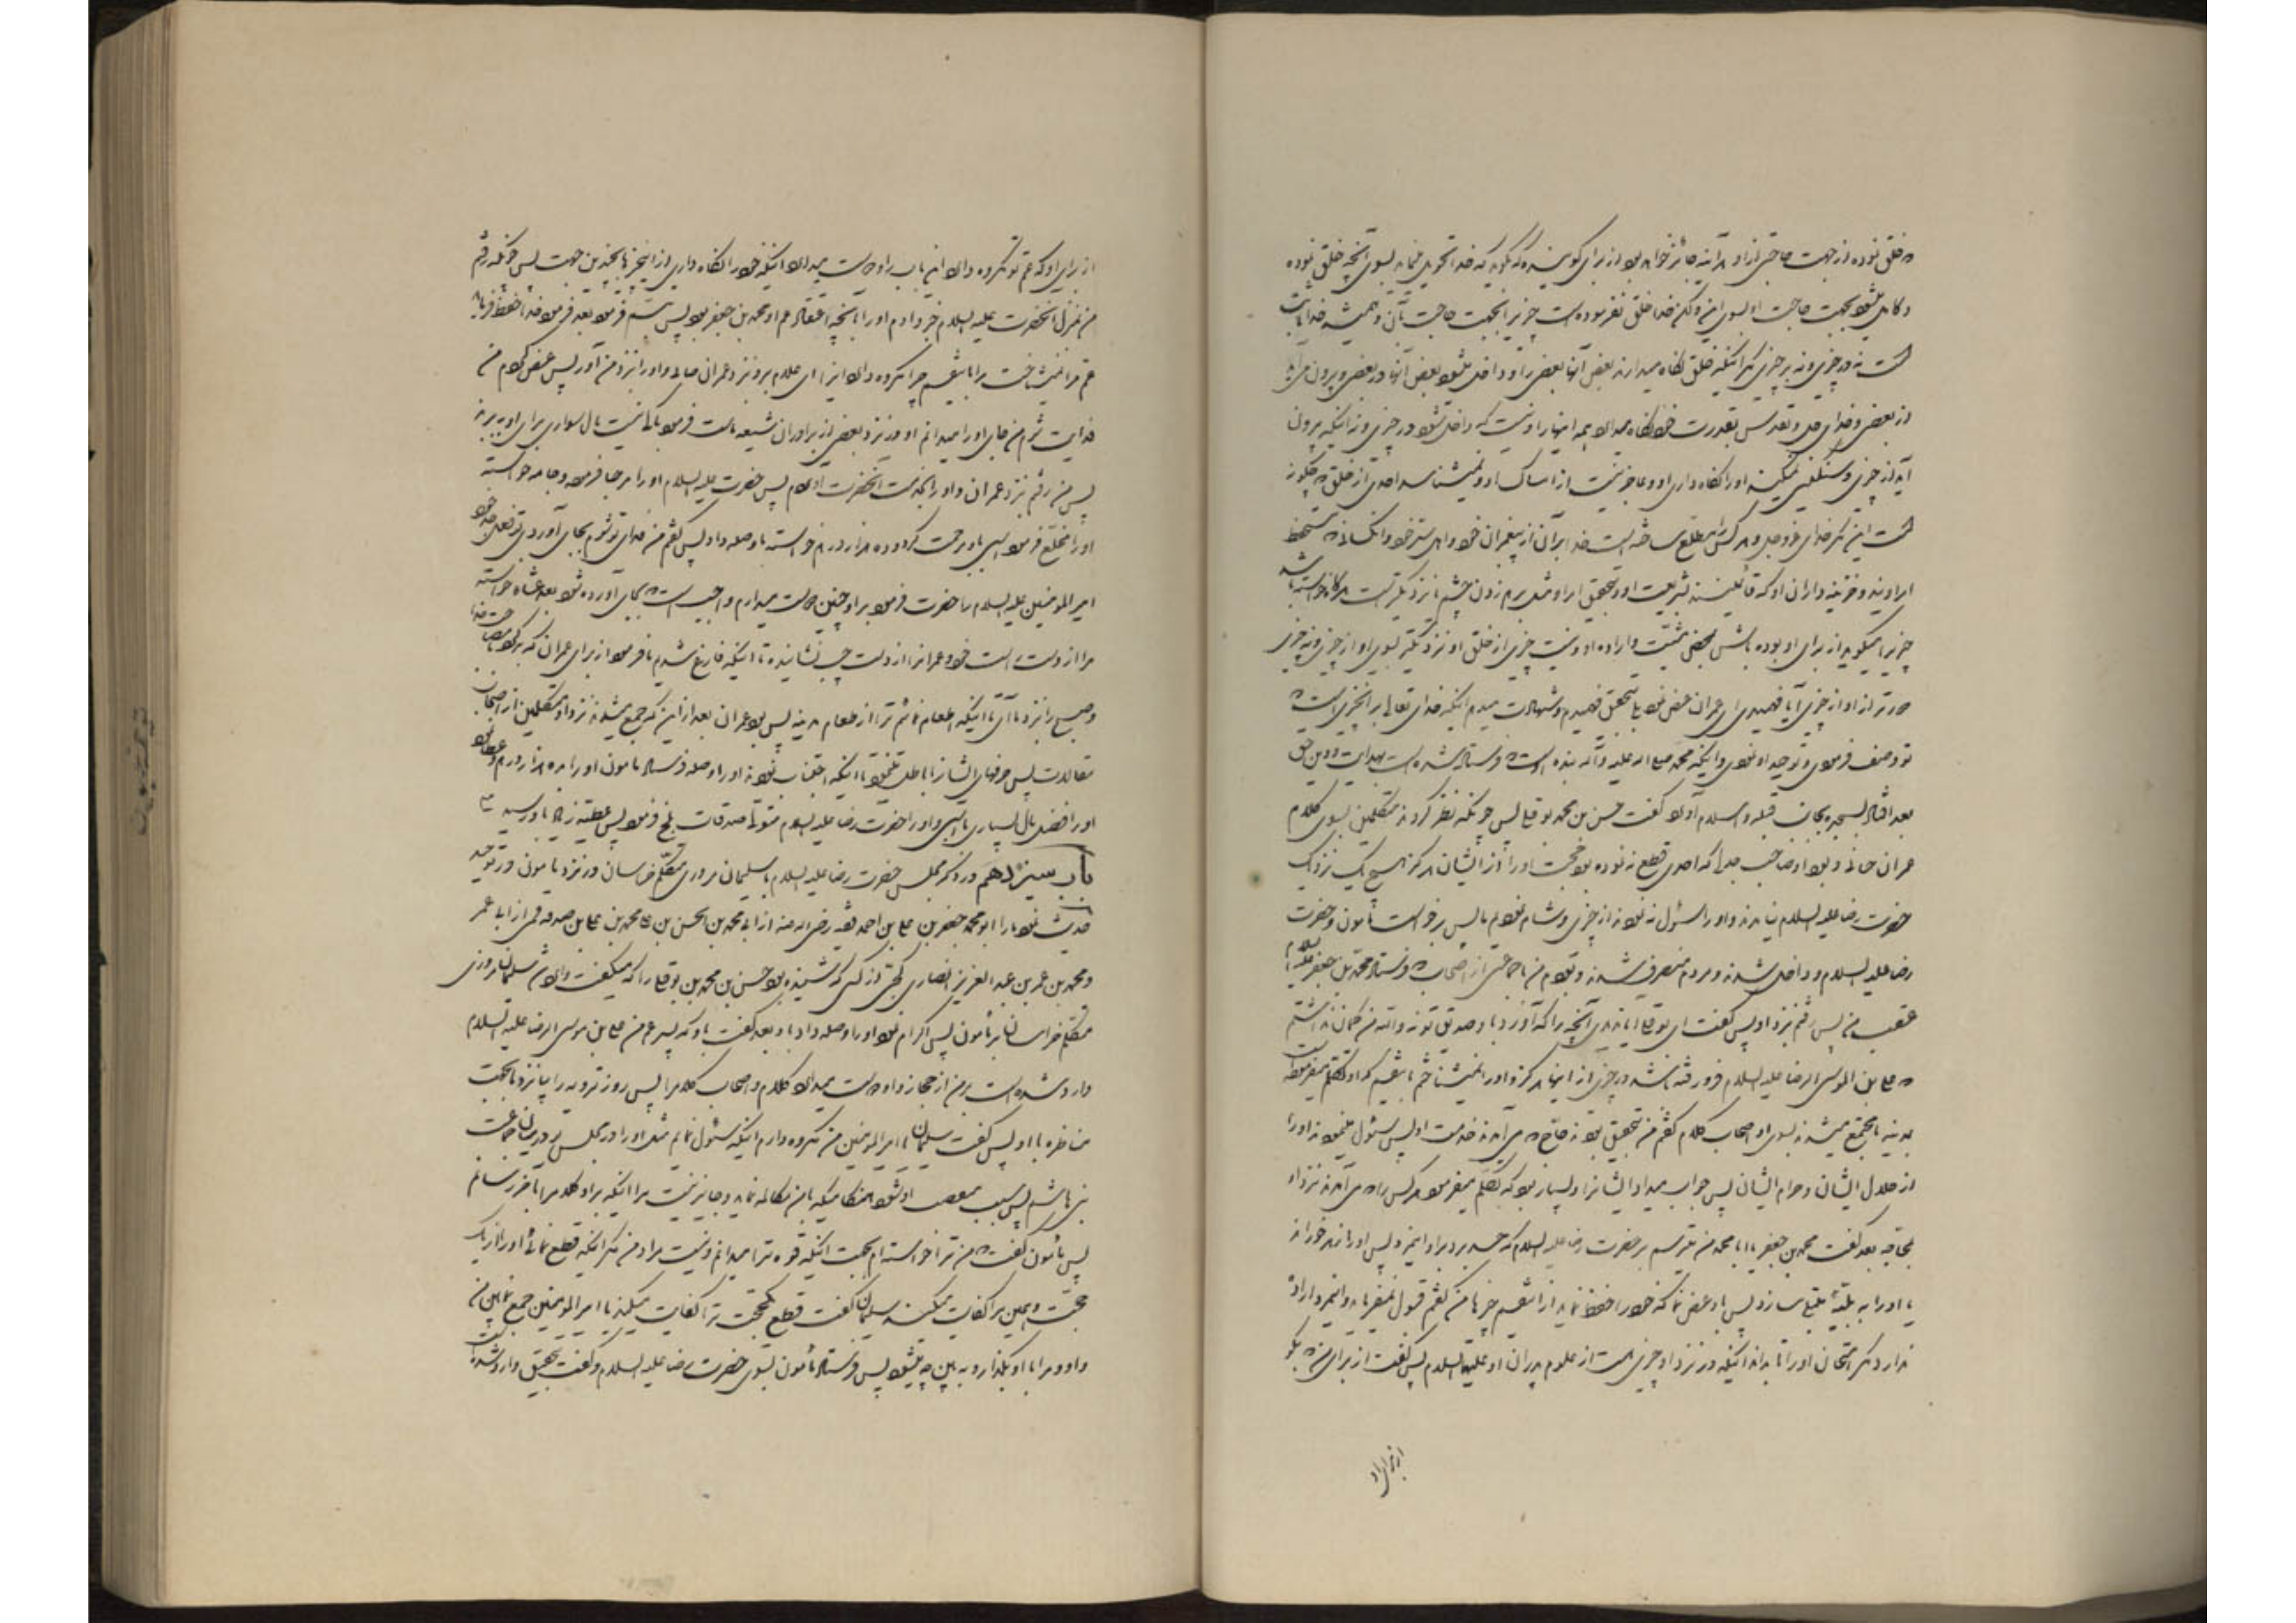 خلق نموده از جهت حاجتی از او هر آینه جائز خواهد بود از برای گوینده که بگوید که خدا تحویل مینماید بسوی آنچه خلق نموده
بجهت حاجت او بسوی این ولکن خدا خلق نفرموده است چیزیرا بجهت حاجت بآن و همیشه خدا ثابت
است نه در چیزی و نه بر چیزی مگر اینکه خلق نگاه میدارند بعض آنها بعض را و داخل میشود بعض آنها در بعض و بیرون می
از بعض و خدای جل و تقدس بقدرت خود نگاه میدارد همه اینها را و نیست که داخل شود در چیزی و نه اینکه بیرون
آید از چیزی و سنگین نمیکند او را نگاه داری او و عاجز نیست از امساک او و نمیشناسد احدی از خلق که چگونه
است این مگر خدای عزوجل و هر کس را مطلع ساخته است خدا بر آن از پیغمبران خود و اهل سر خود و
امر اویند و خزینه داران او که قائمینند بشریعت او و بتحقیق امر او مثل برهم زدن چشم یا نزدیکتر است هرگاه خواسته باشد
چیزیرا میگوید از برای او بوده باش پس بمحض مشیت و اراده او و نیست چیزی از خلق او نزدیکتر بسوی او از چیزی و نه چیزی
دورتر از او از چیزی آیا فهمیدی ای عمران عرض نمود بلی بتحقیق فهمیدم و شهادت میدهم اینکه خدای تعالی بر آنچیزی است که
تو وصف فرمودی و توحید او نمودی و اینکه محمد صلی الله علیه و آله بنده اوست که فرستاده شده است بهدایت و دین حق
بعد افتاد بسجده بجانب قبله و اسلام آورد گفت حسن بن محمد نوفلی پس چونکه نظر کردند متکلمین بسوی کلام
عمران صابی و بود او صاحب جدل که احدی قطع ننموده بود حجت او را از ایشان هرگز هیچ یک نزدیک
حضرت رضا علیه السلام نیامدند و او را سئول ننمودند از چیزی و شام نمودیم پس برخواست مأمون و حضرت
رضا علیه السلام و داخل شدند و مردم متصرف شدند و بودم من با جماعتی از اصحاب که فرستاد محمد بن جعفر علیه السلام
عقب من پس رفتم نزد او پس گفت ای نوفلی آیا ندیدی آنچه را که آورد با و صدیق تو نه والله من گمان نداشتم
که علی بن الموسی الرضا علیه السلام فرو رفته باشد در چیزی از اینها هرگز و او را نمیشناختم باینقسم که او تکلم میفرموده است
بمدینه یا مجتمع میشدند بسوی او اصحاب کلام گفتم من بتحقیق بودند حاج که می آمدند خدمت او پس سئول مینمودند او را
از حلال ایشان و حرام ایشان پس جواب میداد ایشانرا و بسیار بود که تکلم میفرمود هر کس را که می آمدند نزد او
بمحاجه بعد گفت محمد بن جعفر یا ابا محمد من میترسم بر حضرت رضا علیه السلام که حسد برد بر او این مرد پس او را زهر خوراند
یا او را به بلیه مبتلا سازد پس باو عرض نما که خود را حفظ نماید از اینقسم چیزها من گفتم قبول نمیفرماید و این مرد اراده
ندارد مگر امتحان او را تا بداند اینکه در نزد او چیزی هست از علوم پدران او علیهم السلام پس گفت از برای من که بگو
از برای او
از برای او که عم تو مکروه دارد این باب را و دوست میدارد اینکه خود را نگاه داری از اینچیزها بچندین جهت پس چونکه رفتم
من منزل آنحضرت علیه السلام خبر دادم او را بآنچه اتفاق عم او محمد بن جعفر بود پس تبسم فرمود بعد فرمود خدا حفظ فرماید
عم مرا نمیشناخت مرا باینقسم چرا مکروه دارد اینرا ای غلام برو نزد عمران صابی و او را نزد من آور پس عرض کردم من
فدایت شوم من جای او را میدانم او در نزد بعضی از برادران شیعه ماست فرمود باکی نیست مال سواری برای او ببرند
پس من رفتم نزد عمران و او را بخدمت آنحضرت آوردم پس حضرت علیه السلام او را مرحبا فرموده و جامه خواسته
او را مخلع فرمود اسبی باو مرحمت کرد و ده هزار درهم خواسته باو صله داد پس گفتم من فدای تو شوم بجای آوردی تو فعل جد خود
امیر المؤمنین علیه السلام را حضرت فرمود براو چنین دوست میدارم واجب است که بجای آورده شود بعد عشاء خواسته
مرا از دست راست خود و عمرانرا از دست چپ نشانیده تا اینکه فارغ شدیم ما فرمود از برای عمران که برگرد
و صبح را نزد ما آی تا اینکه اطعام نمائم ترا از طعام مدینه پس بود عمران بعد از این که جمع میشدند نزد او متکلمین از اصحاب
مقالات پس حرفهای ایشانرا باطل مینمود تا اینکه اجتناب نمودند او را و صله فرستاد مأمون او را به ده هزار درهم و عطا نمود
او را فضل مال بسیاری با اسبی و او را حضرت رضا علیه السلام متولی صدقات بلخ فرمود پس عطیه زیاد باو رسید
باب سیزدهم در ذکر مجلس حضرت رضا علیه السلام با سلیمان مروزی متکلم خراسان در نزد مأمون در توحید
حدیث نمود ما را ابو محمد جعفر بن علی بن احمد فقیه رضی الله عنه از ابی محمد بن الحسن بن محمد بن علی بن صدقه قمی از ابا عمر
و محمد بن عمر بن عبد العزیز انصاری کجی از کسی که شنیده بود حسن بن محمد بن نوفلی را که میگفت وارد شد سلیمان مروزی
متکلم خراسان بر مأمون پس اکرام نمود او را و صله داد باو بعد گفت باو که پسر عم من علی بن موسی الرضا علیه السلام
وارد شده است بر من از حجاز و او دوست میدارد کلام و اصحاب کلام را پس روز ترویه را بیا نزد ما بجهت
مناظره با او پس گفت سلیمان یا امیر المؤمنین من مکروه دارم اینکه سئول نمایم مثل او را در مجلس تو در میان جماعت
بنی هاشم پس بسبب منقصت او شود هنگامیکه با من مکالمه نماید و جایز نیست مرا اینکه بر او کلام را بآخر رسانم
پس مأمون گفت که من ترا خواسته ام بجهت اینکه قوه ترا میدانم و نیست مراد من مگر آنکه قطع نمائی او را از یک
حجت و همین مرا کفایت میکند سلیمان گفت قطع حجت ترا کفایت میکند یا امیر المؤمنین جمع نما بین من
و او و مرا با او بگذار و به بین چه میشود پس فرستاد مأمون بسوی حضرت رضا علیه السلام و گفت بتحقیق وارد شده است